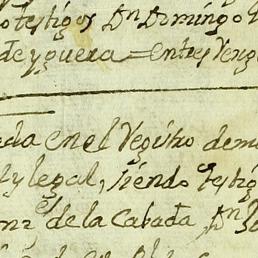 testigos Dn Domingo
de yguera = entre Reng
da en el Registro de mi
y legal, siendo testig
de la Cavada Dn